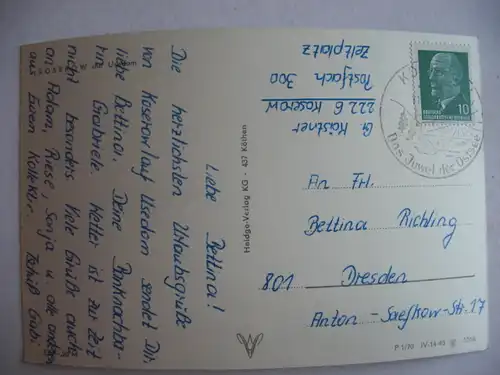 KOSEROW auf Usedom
Liebe Bettina!
Die herzlichsten Urlaubsgrüße
von Koserow auf Usedom sendet Dir,
liebe Bettina, Deine Banknachba-
rin Gabriele. Wetter ist zur Zeit
nicht besonders. Viele Grüße auch
an Adam, Rose, Sonja u. alle anderen
aus Eurem Kollektiv. Tschüß Gabi.
Heldge-Verlag KG · 437 Köthen
G. Kästner
222 6 Koserow
Postfach 300
Zeltplatz
10
Das Juwel der Ostsee
An Frl.
Bettina Richling
801 Dresden
Anton-Saefkow-Str. 17
P 1/70 IV-14-45